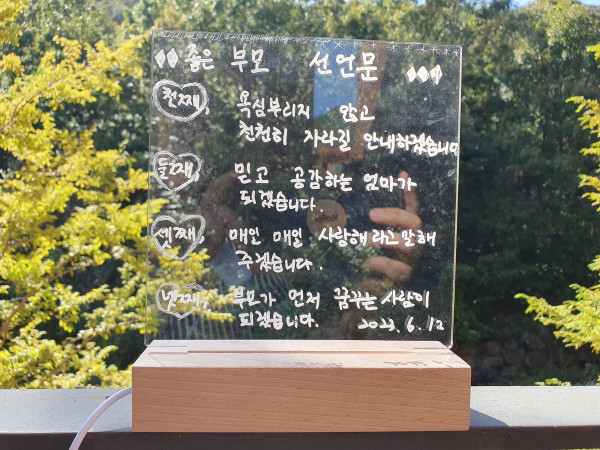 좋은 부모 선언문
첫째, 욕심부리지 않고
천천히 자라길 안내하겠습니다
둘째, 믿고 공감하는 엄마가
되겠습니다.
셋째, 매일 매일 사랑해 라고 말해
주겠습니다.
넷째, 부모가 먼저 꿈꾸는 사람이
되겠습니다. 2023. 6. 12